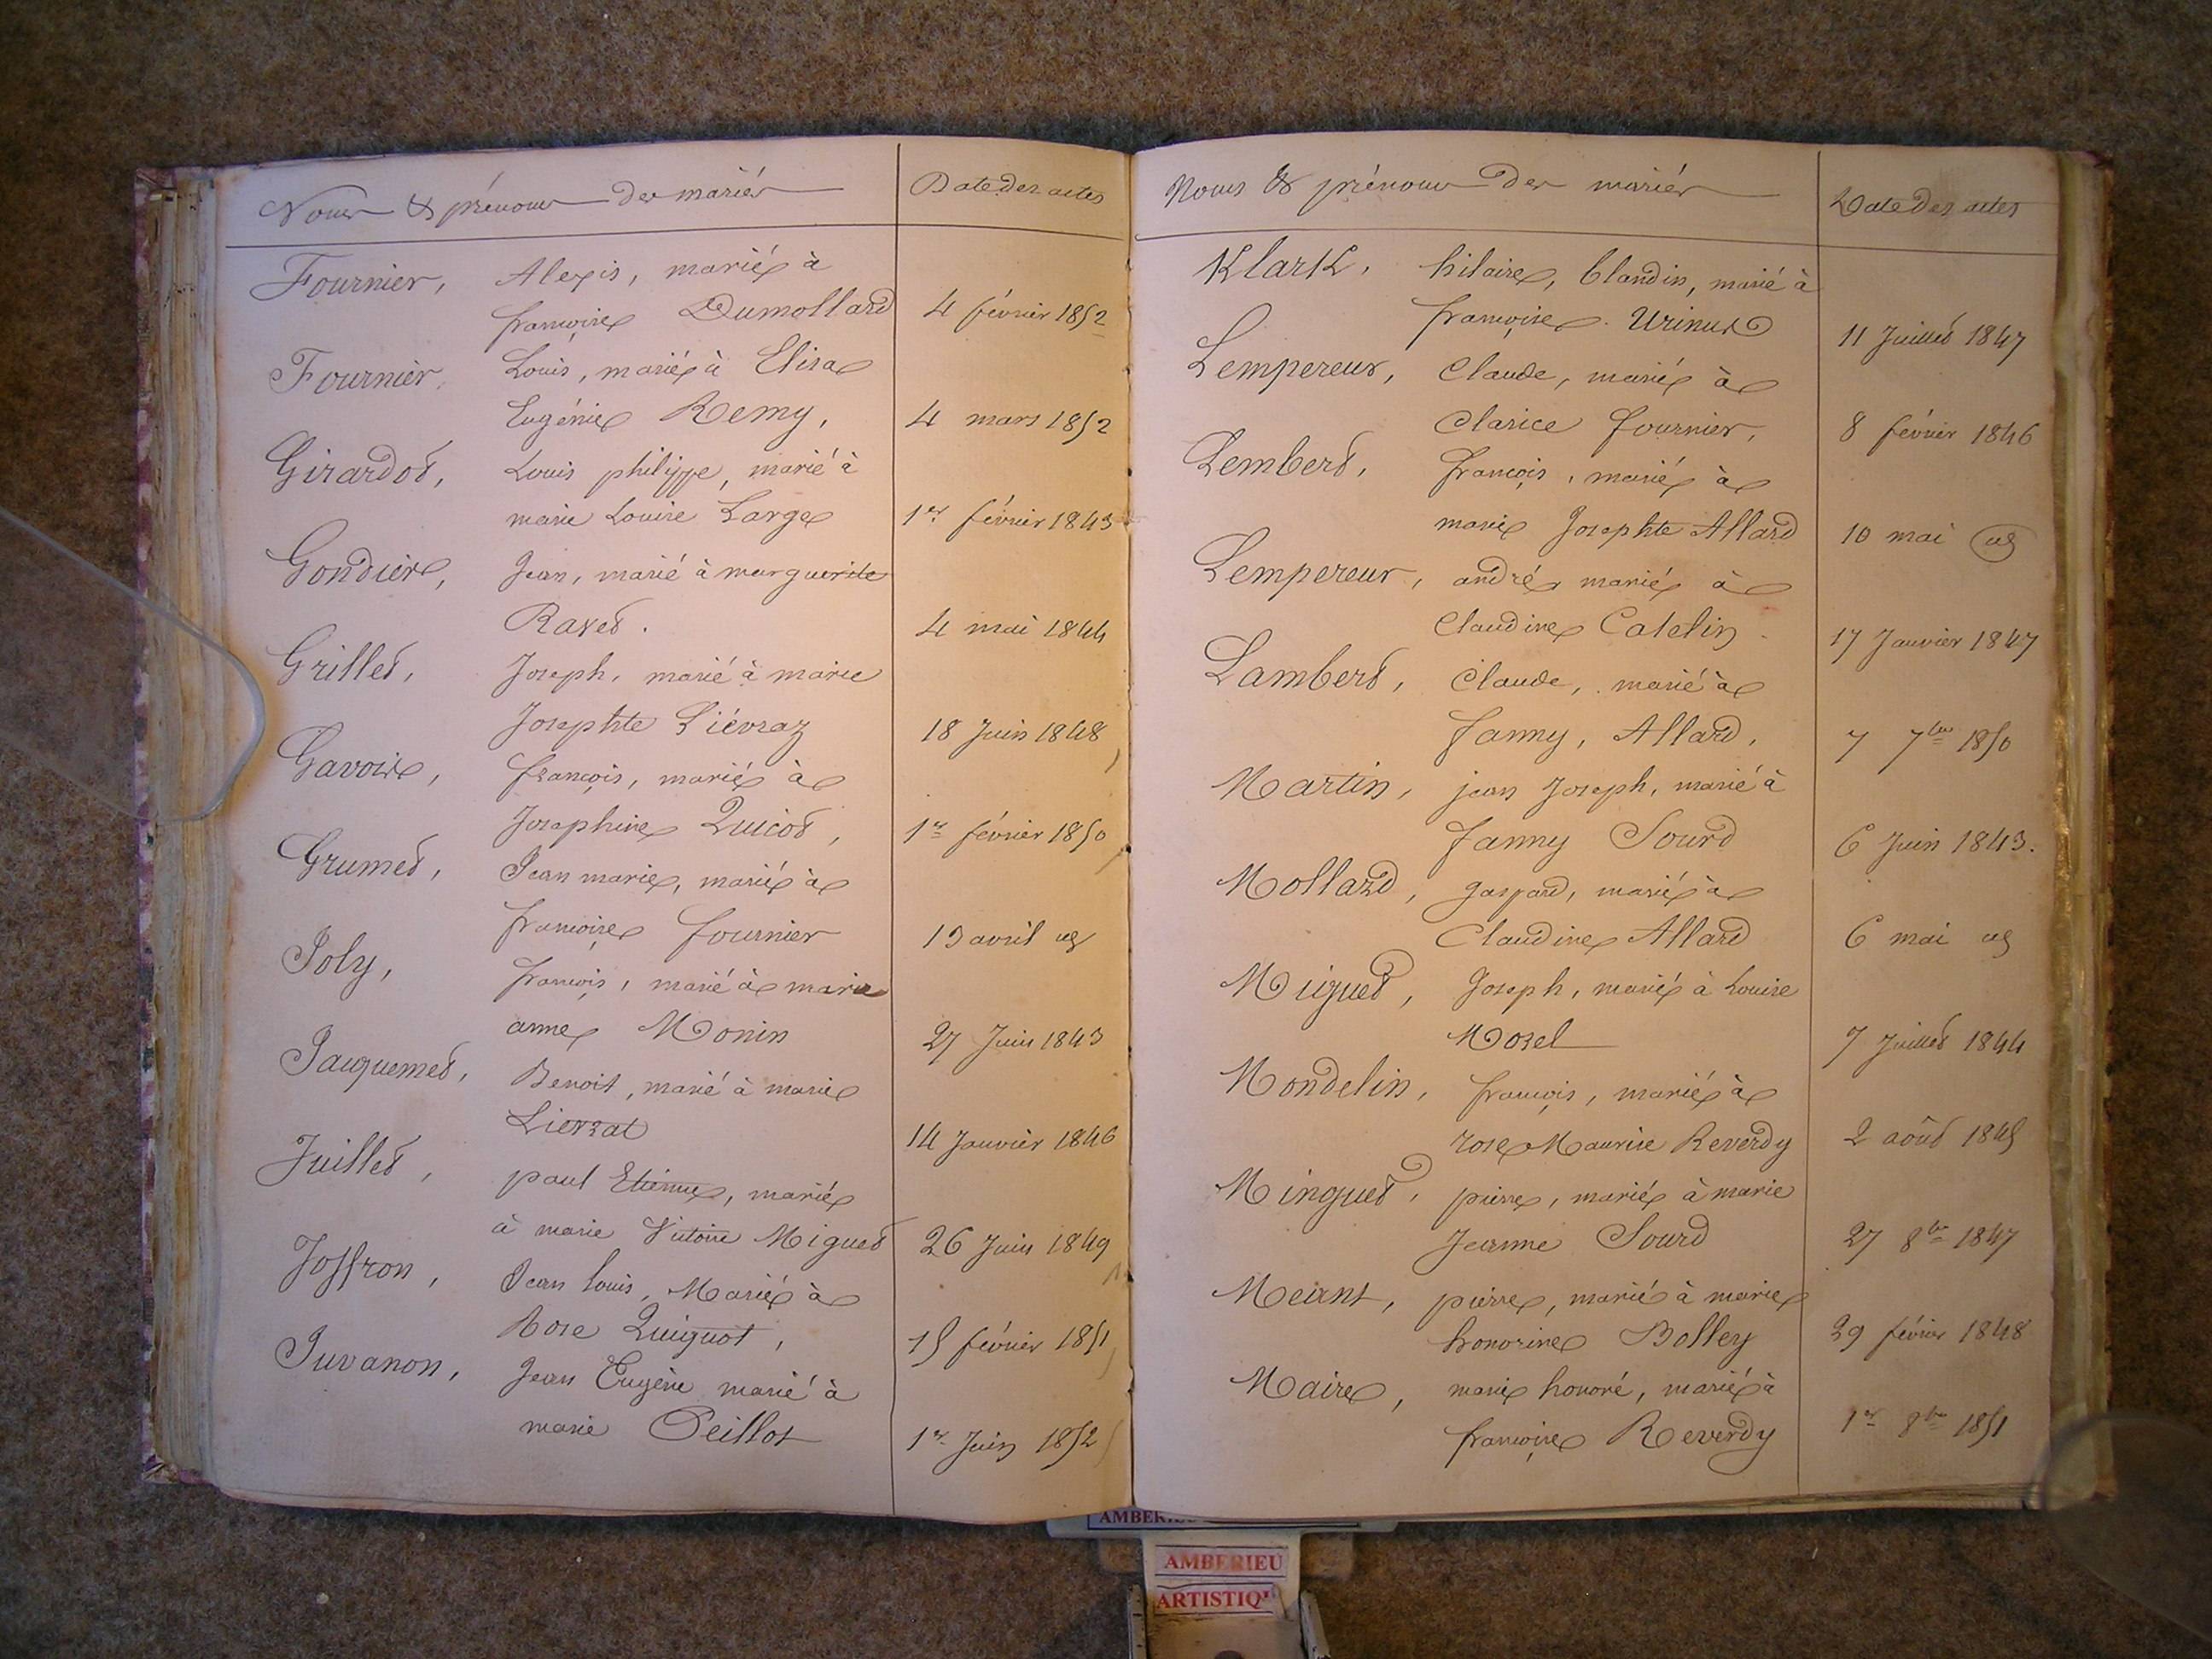 Noms & prénoms des mariés
Date des actes
Fournier, Alexis, marié à
françoise Dumollard 4 février 1852
Fournier, Louis, marié à Elisa
Eugénie Remy, 4 mars 1852
Girardot, Louis philippe, marié à
marie Louise Large 1er février 1843
Gondière, Jean, marié à marguerite
Ravet. 4 mai 1844
Grillet, Joseph, marié à marie
Josephte Liévraz 18 Juin 1848
Gavoire, françois, marié à
Josephine Quicot, 1er février 1850
Grumet, Jean marie, marié à
françoise fournier 13 avril us
Joly, françois, marié à marie
anne Monin 27 Juin 1843
Jacquemet, Benoit, marié à marie
Lievrat 14 Janvier 1846
Juillet, paul Etienne, marié
à marie Victoire Miguet 26 Juin 1849
Joffron, Jean louis, Marié à
Rose Quiguot, 15 février 1851
Juvanon, Jean Eugène marié à
marie Peillot 1er Juin 1852
Noms & prénoms des mariés
Date des actes
Klark, hilaire, Claudin, marié à
françoise 11 Juillet 1847
Lempereur, Claude, marié à
Clarice fournier, 8 février 1846
Lembert, françois, marié à
marie Josephte Allard 10 mai us
Lempereur, andré marié à
Claudine Catelin 17 Janvier 1847
Lambert, Claude, marié à
fanny, Allard, 7 7bre 1850
Martin, jean Joseph, marié à
fanny Sourd 6 Juin 1843.
Mollard, gaspard, marié à
Claudine Allard 6 mai us
Miguet, Joseph, marié à Louise
Morel 7 Juillet 1844
Mondelin, françois, marié à
rose Maurise Reverdy 2 aôut 1845
Minguet, pierre, marié à marie
Jeanne Sourd 27 8bre 1847
Meant, pierre, marié à marie
honorine Bolley 29 février 1848
Maire, marie honoré, marié à
françoise Reverdy 1er 8bre 1851
AMBERIEU
ARTISTIQU